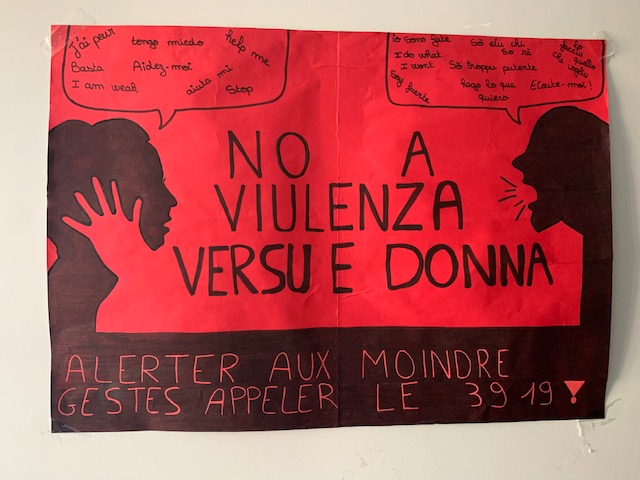 J'ai peur tengo miedo help me
Basta Aidez-moi
I am weak aiuta mi Stop
Io sono forte Sò eiu chi
I do what So rè
I want Sò troppu putente
Soy fuerte hago lo que Ecoute-moi !
quiero
NO A
VIULENZA
VERSU E DONNA
ALERTER AUX MOINDRE
GESTES APPELER LE 39 19 !